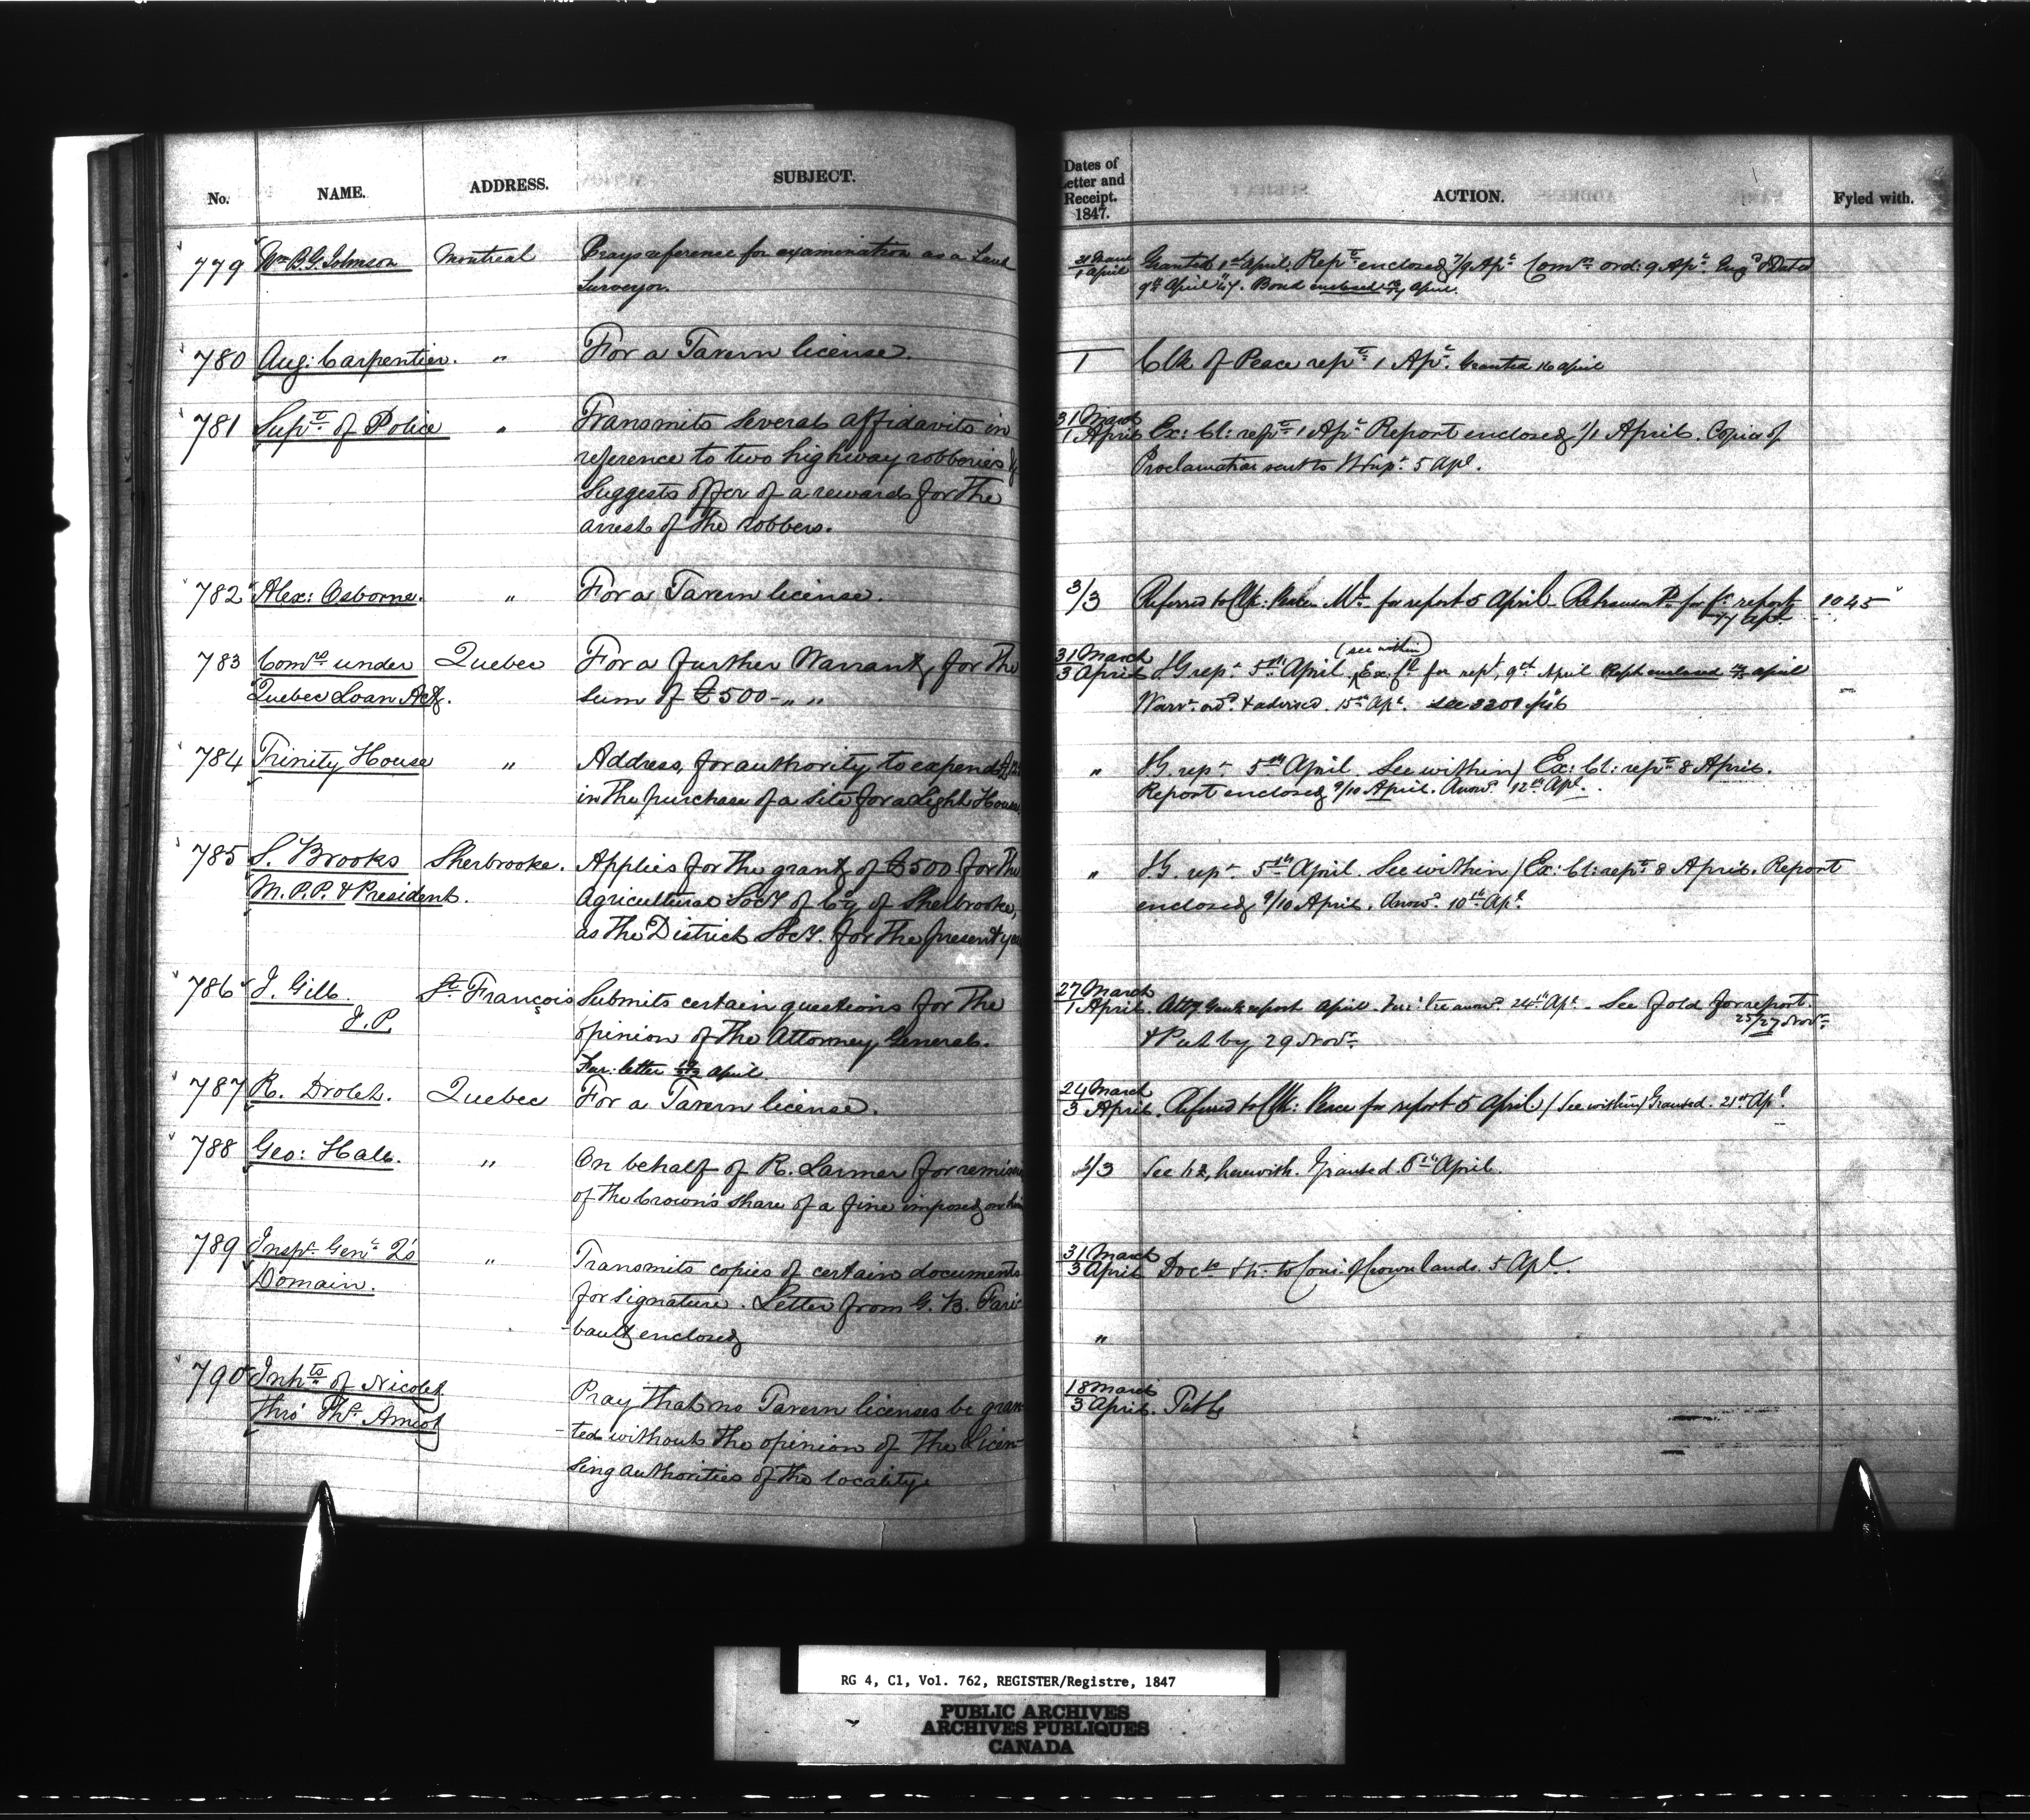 No. NAME. ADDRESS. SUBJECT.
779 Wm B.G. Johnson Montreal Prays reference for examination as a Land
Surveyor.
780 Aug: Carpentier. " For a Tavern license.
781 Supt. of Police " Transmits several affidavits in
reference to two highway robberies &
suggests offer of a reward for the
arrest of the robbers.
782 Alex: Osborne. " For a Tavern license.
783 Comrs under Quebec For a further Warrant, for the
Quebec Loan Act. sum of £500 - " "
784 Trinity House " Address, for authority to expend
in the purchase of a site for a Light House
785 S. Brooks Sherbrooke. Applies for the grant of £500 for the
M.P.P. & President. Agricultural Socy of Coy of Sherbrooke,
as the District Socy. for the present year
786 J. Gill St. François Submits certain questions for the
J.P. opinion of the Attorney General.
Fur: letter April
787 R. Drolet. Quebec For a Tavern license.
788 Geo: Hale. " On behalf of R. Larmer for remission
of the Crown's share of a fine imposed on him
789 Inspr. Genl. Q's " Transmits copies of certain documents
Domain. for signature. Letter from G. B. Fari-
-bault enclosed
790 Inhts of Nicolet Pray that no Tavern licenses be gran-
thro' Ths. Amiot -ted without the opinion of the Licen-
sing authorities of the locality
Dates of
Letter and
Receipt.
1847.
ACTION. Fyled with.
31 March
1 April Granted 1st April. Rept enclosed 7/9 Apl. Comn ord: 9 Apl. & Dated
9th April '47. Bond enclosed April.
1 Clk of Peace rept 1 Apl. Granted 16 April
31 March
1 April Ex: Cl: rept 1 Apl. Report enclosed 1/1 April. Copies of
Proclamation sent to 5 Apl.
3/3 Referred to Clk: Peace Ml. for report 5 April for report 1045
Apl
31 March (see within)
3 April I G rept 5th April. Ex. Cl for rept, 9th April Rept enclosed April
Warrt. ord. & advised. 15th Apl. See 3201
" I.G. rept 5th April. See within / Ex: Cl: rept 8 April.
Report enclosed 9/10 April. Answd. 12th Apl.
" I.G. rept 5th April. See within / Ex: Cl: rept 8 April. Report
enclosed 9/10 April. Answd. 10th Apl.
27 March
1 April. Atty Genls report April. answd. 24th Apl. See fold for report.
25/27 Novr.
& Put by 29 Novr.
24 March
3 April. Referred to Clk: Peace for report 5 April / See within / Granted. 21st Apl.
1/3 See herewith. Granted 5th April.
31 March
3 April Docts to Comr. of Crown lands. 5 Apl.
"
18 March
3 April.
RG 4, C1, Vol. 762, REGISTER/Registre, 1847
PUBLIC ARCHIVES
ARCHIVES PUBLIQUES
CANADA